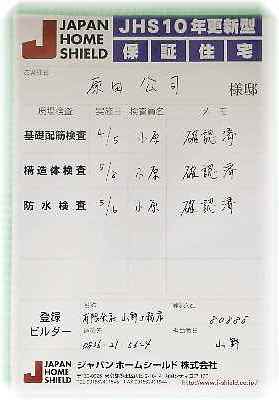 JAPAN HOME SHIELD
JHS10年更新型
保証住宅
原田 公司 様邸
現場検査 実施日 検査員名 メモ
基礎配筋検査 4/5 小原 確認済
構造体検査 5/6 小原 確認済
防水検査 5/6 小原 確認済
登録ビルダー
有限会社 山野工務店
80885
山野
JAPAN HOME SHIELD
ジャパンホームシールド株式会社